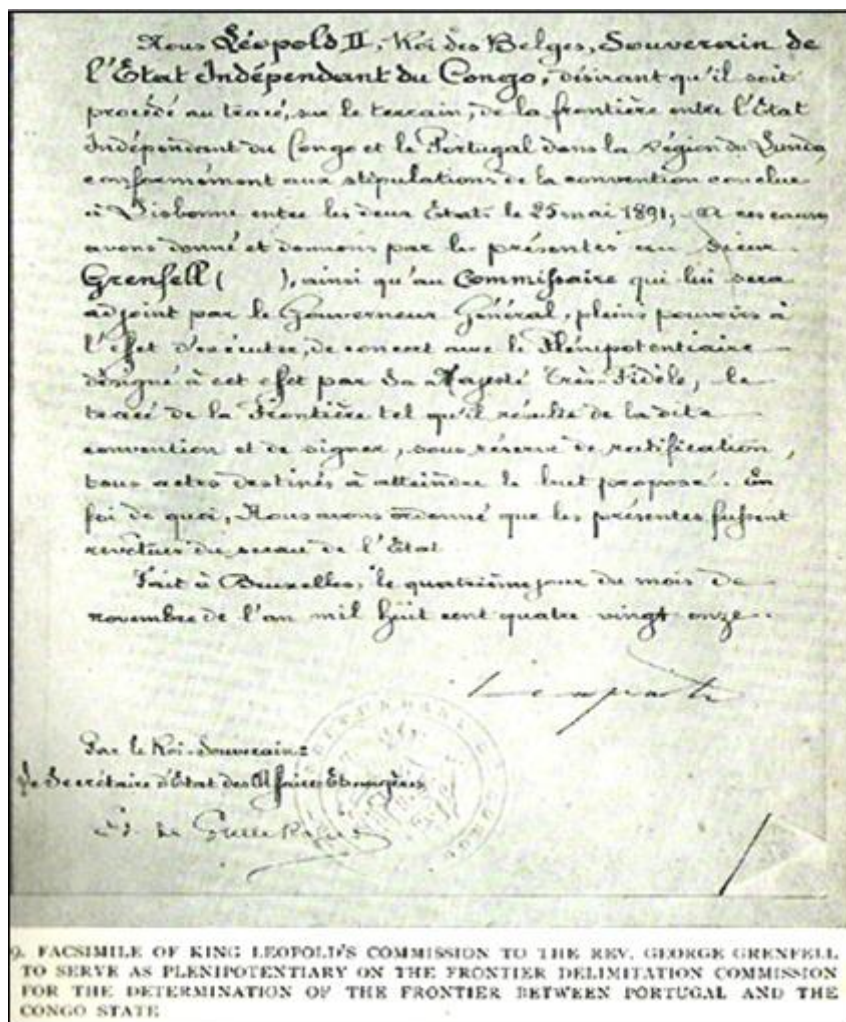 Nous Léopold II, Roi des Belges, Souverain de
l'État Indépendant du Congo, désirant qu'il soit
procédé au tracé, sur le terrain, de la frontière entre l'État
Indépendant du Congo et le Portugal dans la région du Lunda,
conformément aux stipulations de la convention conclue
à Lisbonne entre les deux États le 25 mai 1891, A ces causes
avons donné et donnons par les présentes au Sieur
Grenfell ( ), ainsi qu'au Commissaire qui lui sera
adjoint par le Gouverneur Général, pleins pouvoirs à
l'effet d'exécuter, de concert avec le Plénipotentiaire
désigné à cet effet par Sa Majesté Très-Fidèle, le
tracé de la Frontière tel qu'il résulte de la dite
convention et de signer, sous réserve de ratification,
tous actes destinés à atteindre le but proposé. En
foi de quoi, Nous avons ordonné que les présentes fussent
revêtues du sceau de l'État.
Fait à Bruxelles, le quatrième jour du mois de
novembre de l'an mil huit cent quatre vingt onze.
Léopold
Par le Roi-Souverain:
Le Secrétaire d'Etat des Affaires Etrangères
9. FACSIMILE OF KING LEOPOLD'S COMMISSION TO THE REV. GEORGE GRENFELL
TO SERVE AS PLENIPOTENTIARY ON THE FRONTIER DELIMITATION COMMISSION
FOR THE DETERMINATION OF THE FRONTIER BETWEEN PORTUGAL AND THE
CONGO STATE